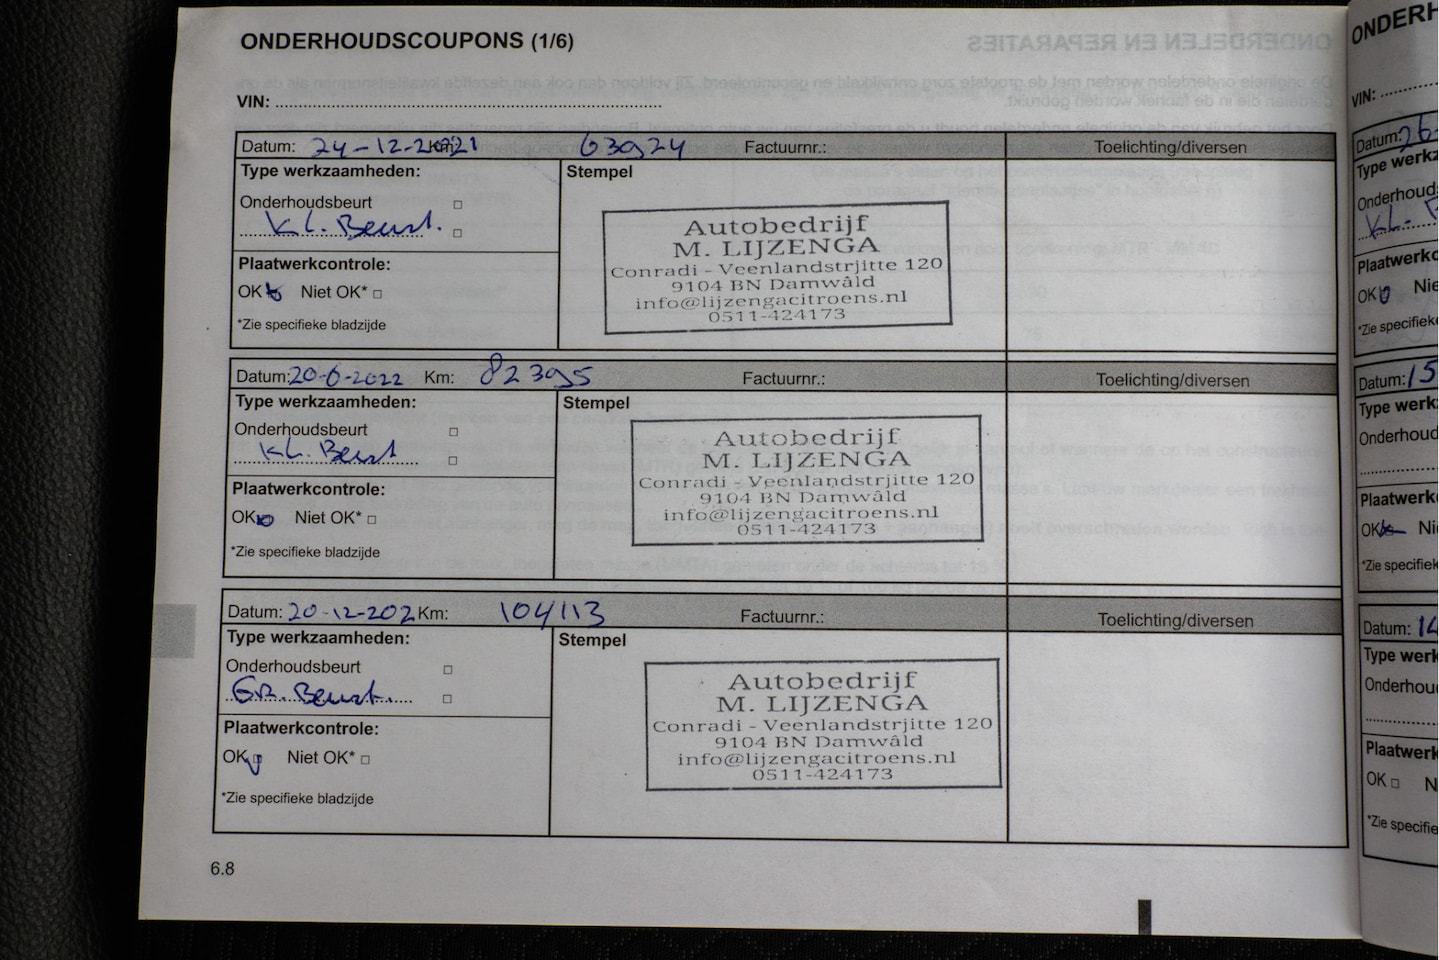 ONDERHOUDSCOUPONS (1/6)
VIN:
Datum: 24-12-2021 Km: 63924 Factuurnr.: Toelichting/diversen
Type werkzaamheden: Stempel
Onderhoudsbeurt
KL. Beurt.
Plaatwerkcontrole:
OK Niet OK*
*Zie specifieke bladzijde
Autobedrijf
M. LIJZENGA
Conradi - Veenlandstrjitte 120
9104 BN Damwâld
info@lijzengacitroens.nl
0511-424173
Datum: 20-6-2022 Km: 82395 Factuurnr.: Toelichting/diversen
Type werkzaamheden: Stempel
Onderhoudsbeurt
KL. Beurt
Plaatwerkcontrole:
OK Niet OK*
*Zie specifieke bladzijde
Autobedrijf
M. LIJZENGA
Conradi - Veenlandstrjitte 120
9104 BN Damwâld
info@lijzengacitroens.nl
0511-424173
Datum: 20-12-202 Km: 104113 Factuurnr.: Toelichting/diversen
Type werkzaamheden: Stempel
Onderhoudsbeurt
GR. Beurt.
Plaatwerkcontrole:
OK Niet OK*
*Zie specifieke bladzijde
Autobedrijf
M. LIJZENGA
Conradi - Veenlandstrjitte 120
9104 BN Damwâld
info@lijzengacitroens.nl
0511-424173
6.8
ONDERH
VIN:
Datum: 26
Type werkz
Onderhouds
KL. B
Plaatwerkc
OK Nie
*Zie specifieke
Datum: 15
Type werkz
Onderhoud
Plaatwerk
OK Ni
*Zie specifiek
Datum: 14
Type werk
Onderhou
Plaatwerk
OK N
*Zie specifie